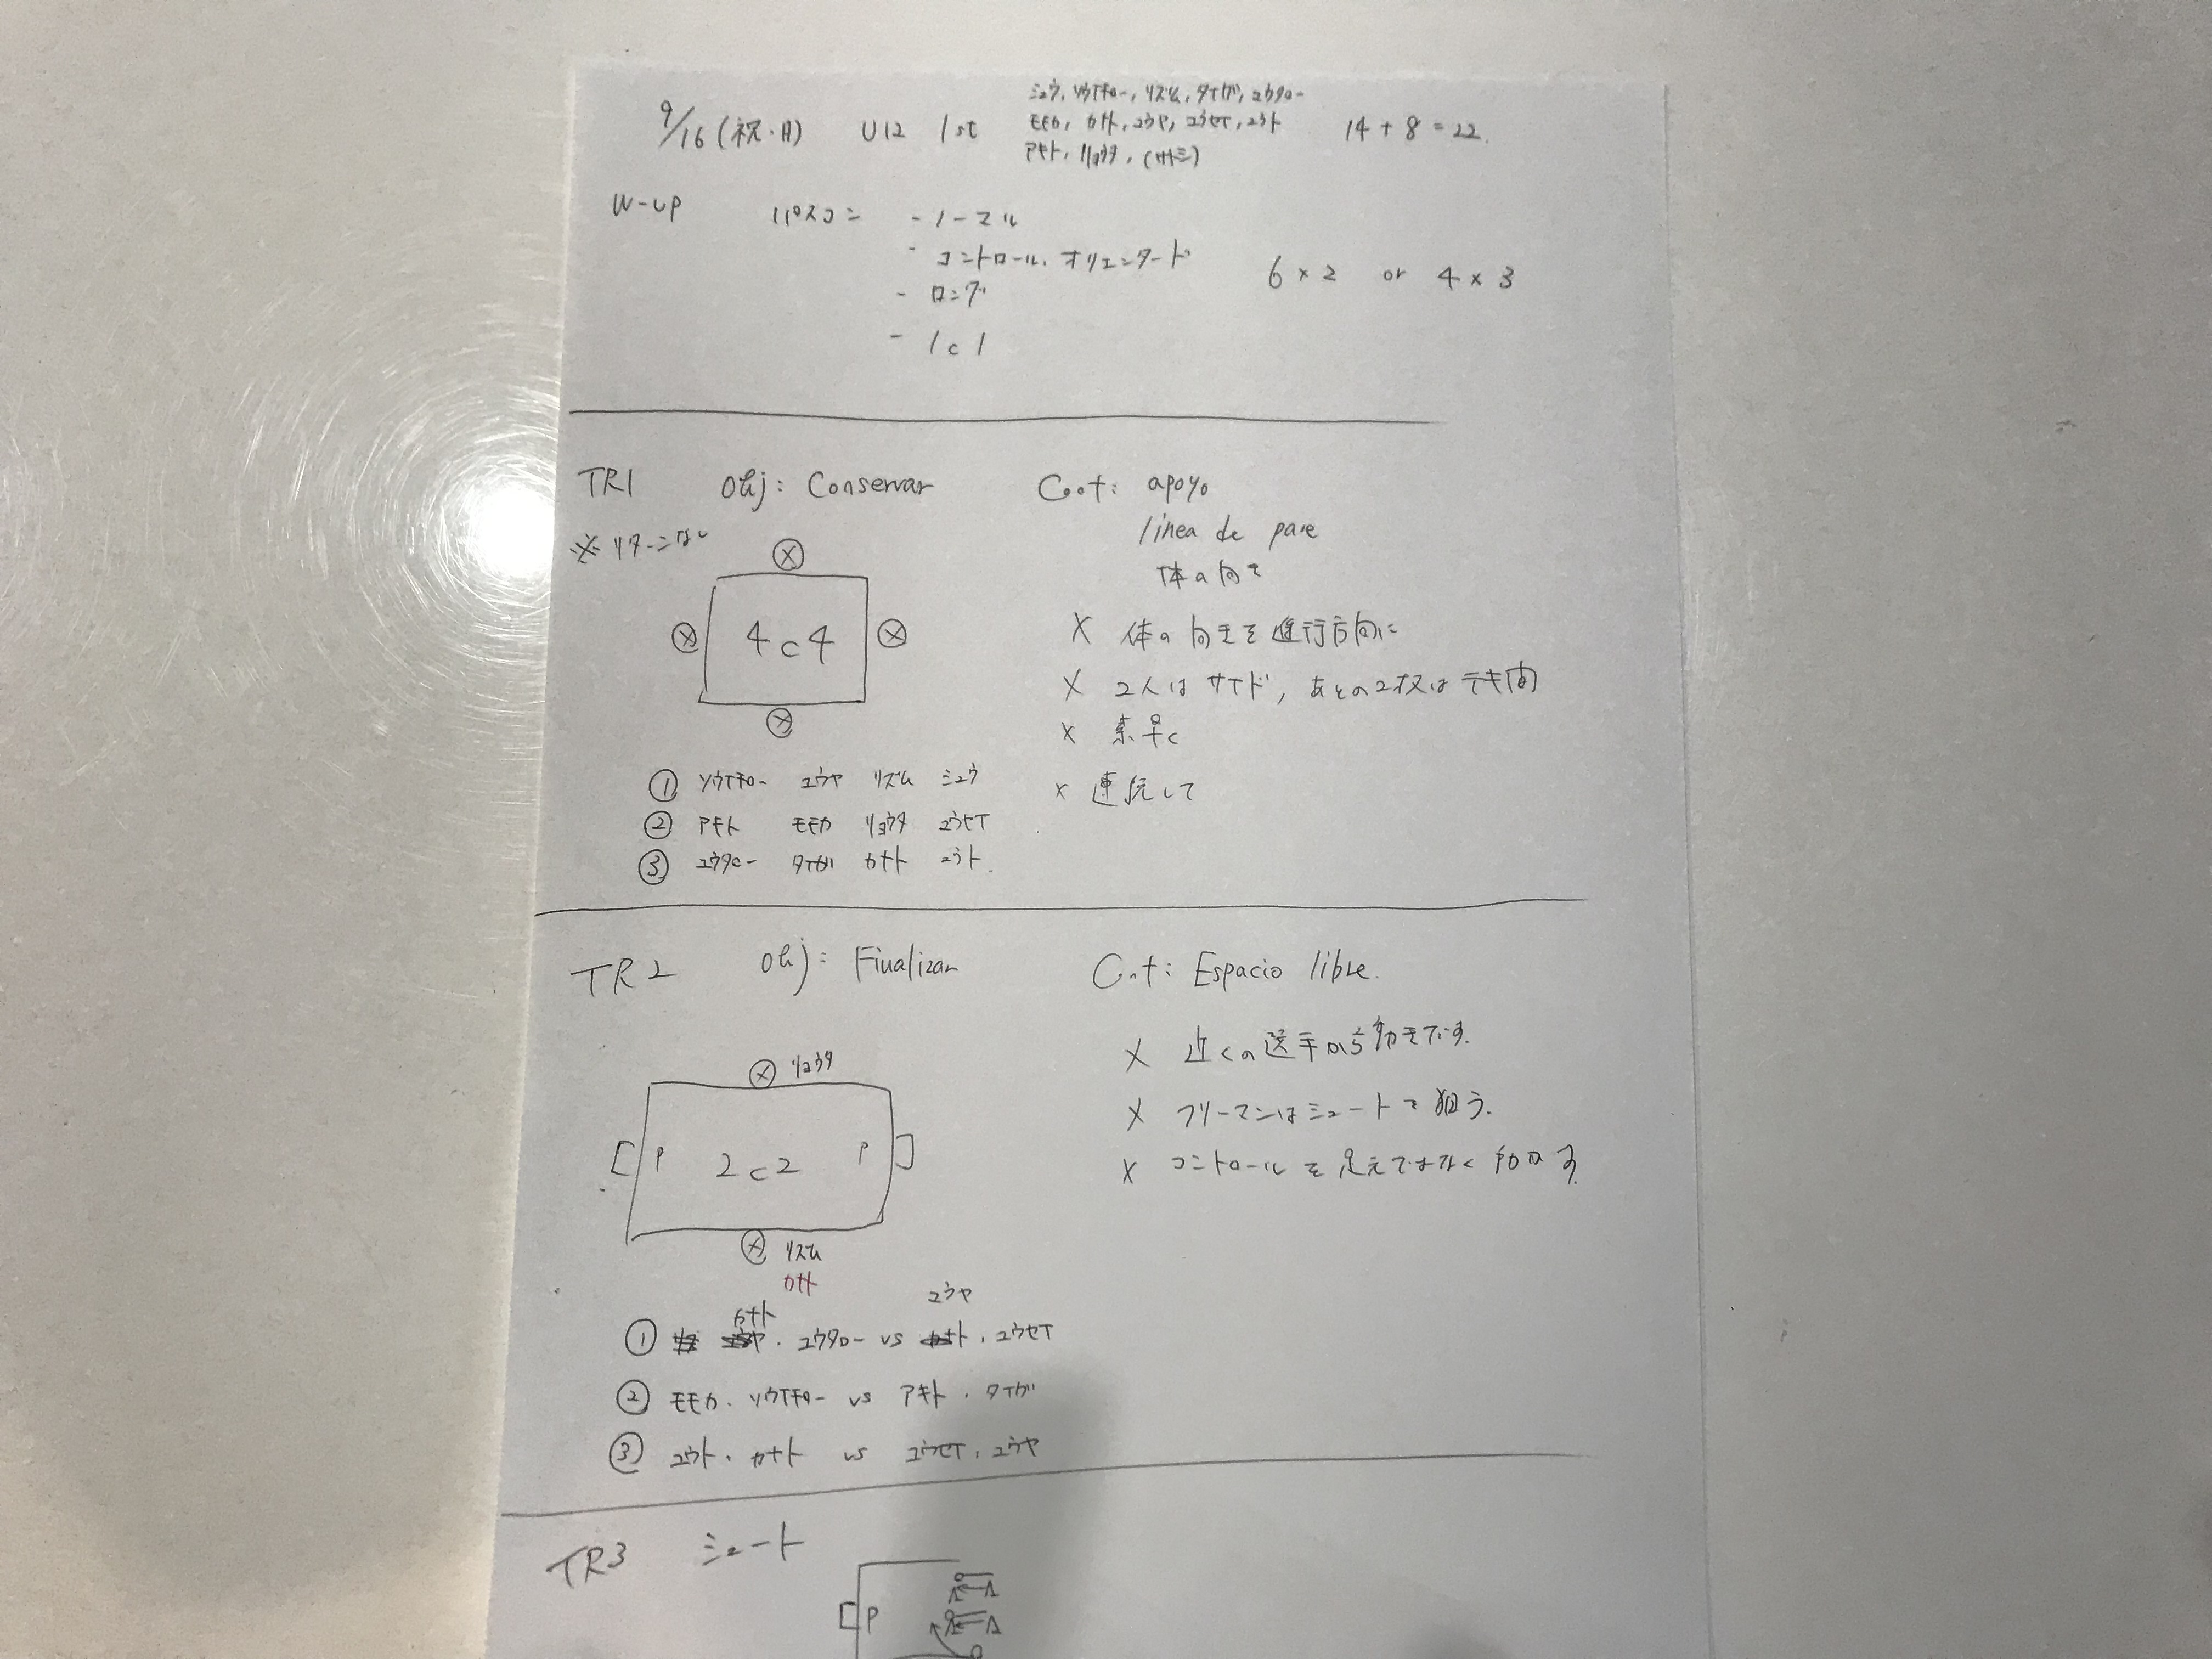 9/16(祝・月) U12 1st
ミュウ, ソウイチロー, リズム, タイガ, ユウタロー
モモカ, カナト, ユウヤ, ユウセイ, ユウト
アキト, リョウタ, (サトミ)
14 + 8 = 22.
W-up パスコン - ノーマル
- コントロール・オリエンタード
- ロング
- 1c1
6 × 2 or 4 × 3
TR1 Obj: Conservar Cont: apoyo
※リターンなし linea de pase
体の向き
X
X 4c4 X
X
X 体の向きを進行方向に
X 2人はサイド, あとの2枚はテキ間
X 素早く
X 連続して
① ソウイチロー ユウヤ リズム ミュウ
② アキト モモカ リョウタ ユウセイ
③ ユウタロー タイガ カナト ユウト.
TR2 Obj: Finalizar Cont: Espacio libre.
X リョウタ
P 2c2 P
X リズム
カナト
X 近くの選手から動きだす.
X フリーマンはシュートを狙う.
X コントロールを足元ではなく動かす.
カナト ユウヤ
① ・ユウタロー vs ・ユウセイ
② モモカ・ソウイチロー vs アキト・タイガ
③ ユウト・カナト vs ユウセイ・ユウヤ
TR3 シュート
P